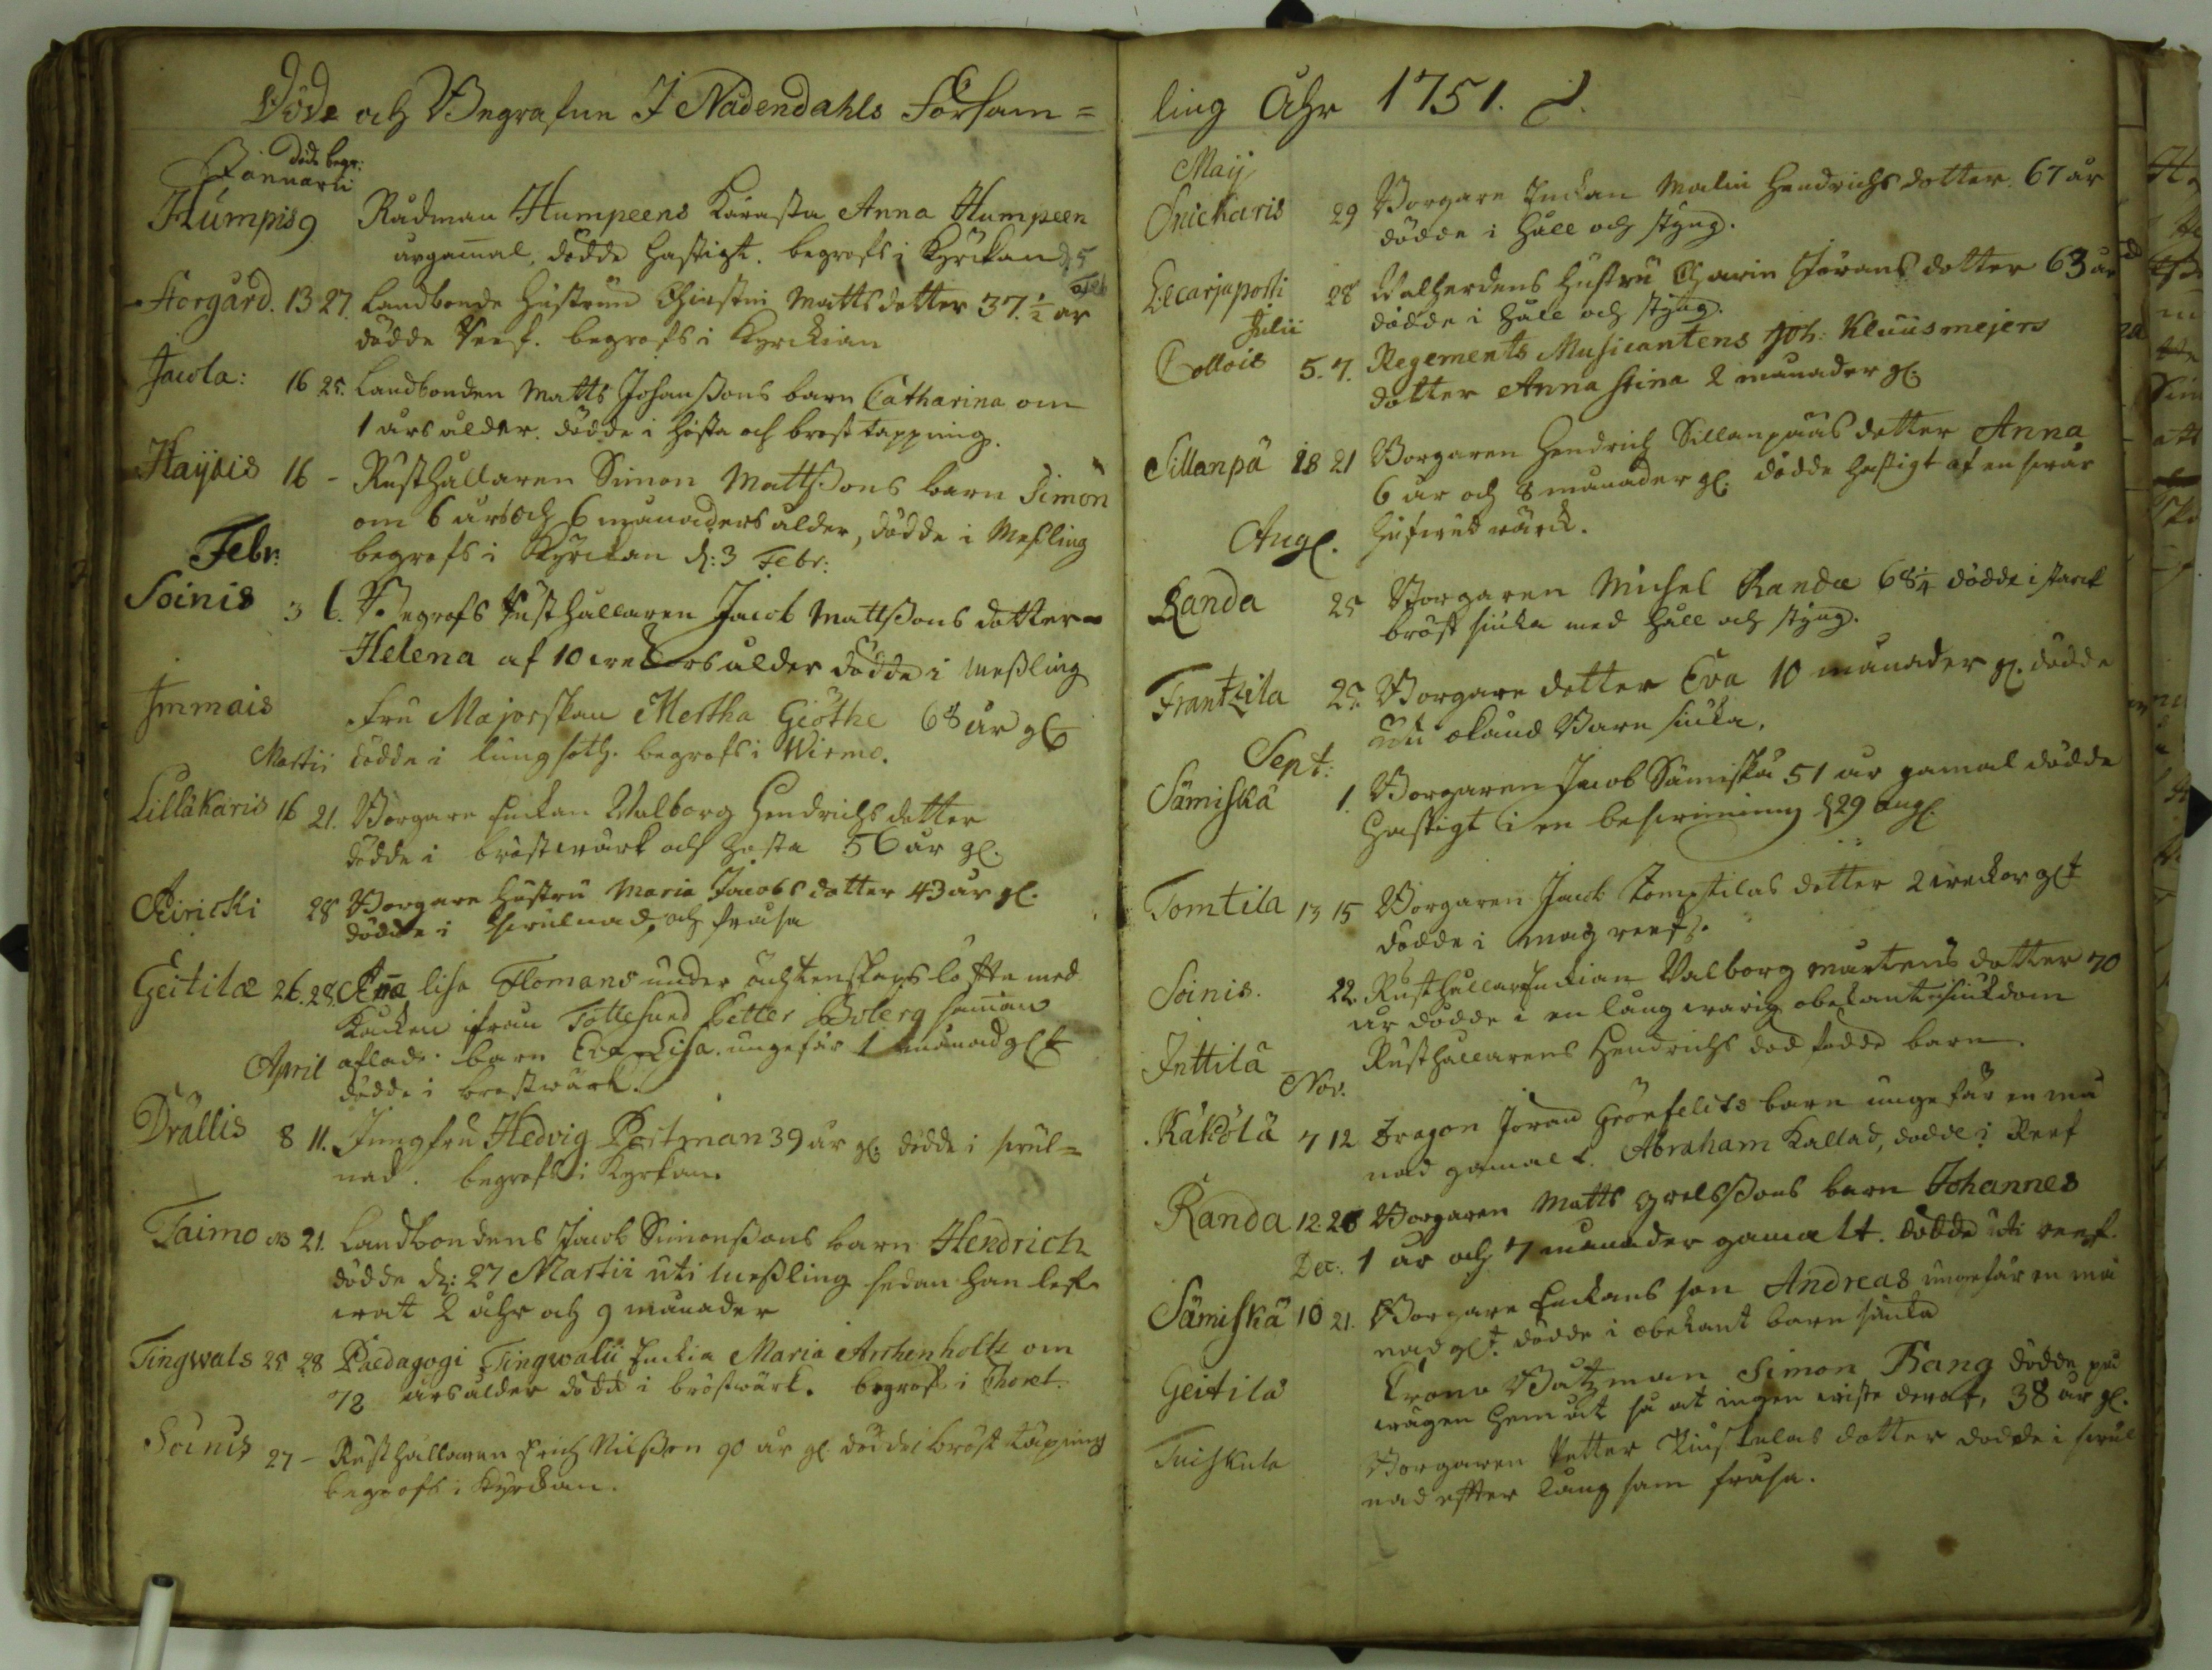 Döde och Begrafne I Nådendahls Försam=
döde begr:
Januarii
Humpis 9 Rådman Humpeens Käresta Anna Humpeen
urgamal, dödde hastigt. begrofs i Kyrckan d. 5
Feb
Storgård. 13 27. Landbonde Hustrun Christin Mattsdotter 37. ½ år
dödde begrofs i Kyrckian
Jacola: 16 25. Landbonden Matts Johanssons barn Catharina om
1 års ålder. dödde i hosta och bröst tappning.
Haijais 16 - Rusthållaren Simon Mattssons barn Simon
om 6 års och 6 månaders ålder, dödde i Messling
begrofs i Kyrckan d: 3 Febr:
Febr:
Soinis 3 6. Begrofs Rusthållaren Jacob Mattssons dotter
Helena af 10 weckors ålder dödde i messling
Immais Fru Majorskan Mertha Giöthe 68 år gl
Martii dödde i lungsoth. begrofs i Wirmo.
Lilläkaris 16 21. Borgare Enckan Walborg Hendrichsdotter
dödde i bröstwärk och hosta 56 år gl.
Kiricki 28 Borgare hustru Maria Jacobsdotter 43 år gl.
dödde i swulnad, och frusa
Geitila 26. 28. Anna Lisa Flomans under ächtenskaps löffte med
ifrån Tottesund Petter Boberg samman
April aflade barn Eva Lisa. ungefär 1 månad glt
dödde i bröstwärk.
Drällis 8 11. Jungfru Hedvig Poitman 39 år gl. dödde i swul=
nad. begrofs i Kyrkan.
Taimo 13 21. Landbondens Jacob Simonssons barn Hendrich
dödde d: 27 Martii uti messling sedan han lef
wat 2 åhr och 9 månader
Tingwals 25 28 Pædagogi Tingwalii Enckia Maria Archenholtz om
72 års ålder dödde i bröstwärk. begrofs i Choret.
Soinis 27 - Rusthållaren Erich Nilsson 90 år gl. dödde i bröst täpning
begrofs i Kyrckan.
ling Åhr 1751.
Maij
Snickaris 29 Borgare Enckan Malin Hendrichsdotter 67 år
dödde i håll och styng.
Lecarjaposti 28 Walherdens hustru Charin Jörans dotter 63 år
dödde i håll och styng.
Julii
Collois 5. 7. Regements Musicantens Joh: Kluusmejers
dotter Anna Stina 2 månader gl.
Sillanpä 18 21 Borgaren Hendrich Sillanpääs dotter Anna
6 år och 8 månader gl. dödde hastigt af en swår
Aug. hufwud wärck.
Randa 25 Borgaren Michel Randa 68¼ dödde i starck
bröst siuka med håll och styng.
Frantzila 25 Borgare dotter Eva 10 månader gl. dödde
okänd Barn siuka.
Sept:
Sämiskä 1. Borgaren Jacob Sämiskä 51 år gamal dödde
hastigt i en beswimning d 29 Aug.
Tomtila 13 15 Borgaren Jacob Tomptilas dotter 2 weckor glt
dödde i mag reef.
Soinis. 22. Rusthållare Enckian Walborg Mårtens dotter 70
år dödde i en lång warig obekant siukdom
Inttilä Rusthållarens Hendrichs död födde barn.
Nov.
Käkölä 7 12 Dragon Jöran Grönfelts barn ungefär en må
nad gamalt. Abraham kallad, dödde i Reef
Randa 12. 28 Borgaren Matts Grelssons barn Johannes
Dec: 1 år och 7 månader gamalt. dödde uti reef.
Sämiskä 10 21. Borgare Enckans son Andreas ungefär en må
nad glt. dödde i obekant barn siuka
Geitila Krono Båtzman Simon Bang dödde på
wägen hem åt så at ingen wiste deraf, 38 år gl.
Tuiskula Borgaren Petter Tuiskulas dotter dödde i swul
nad effter långsam frusa.